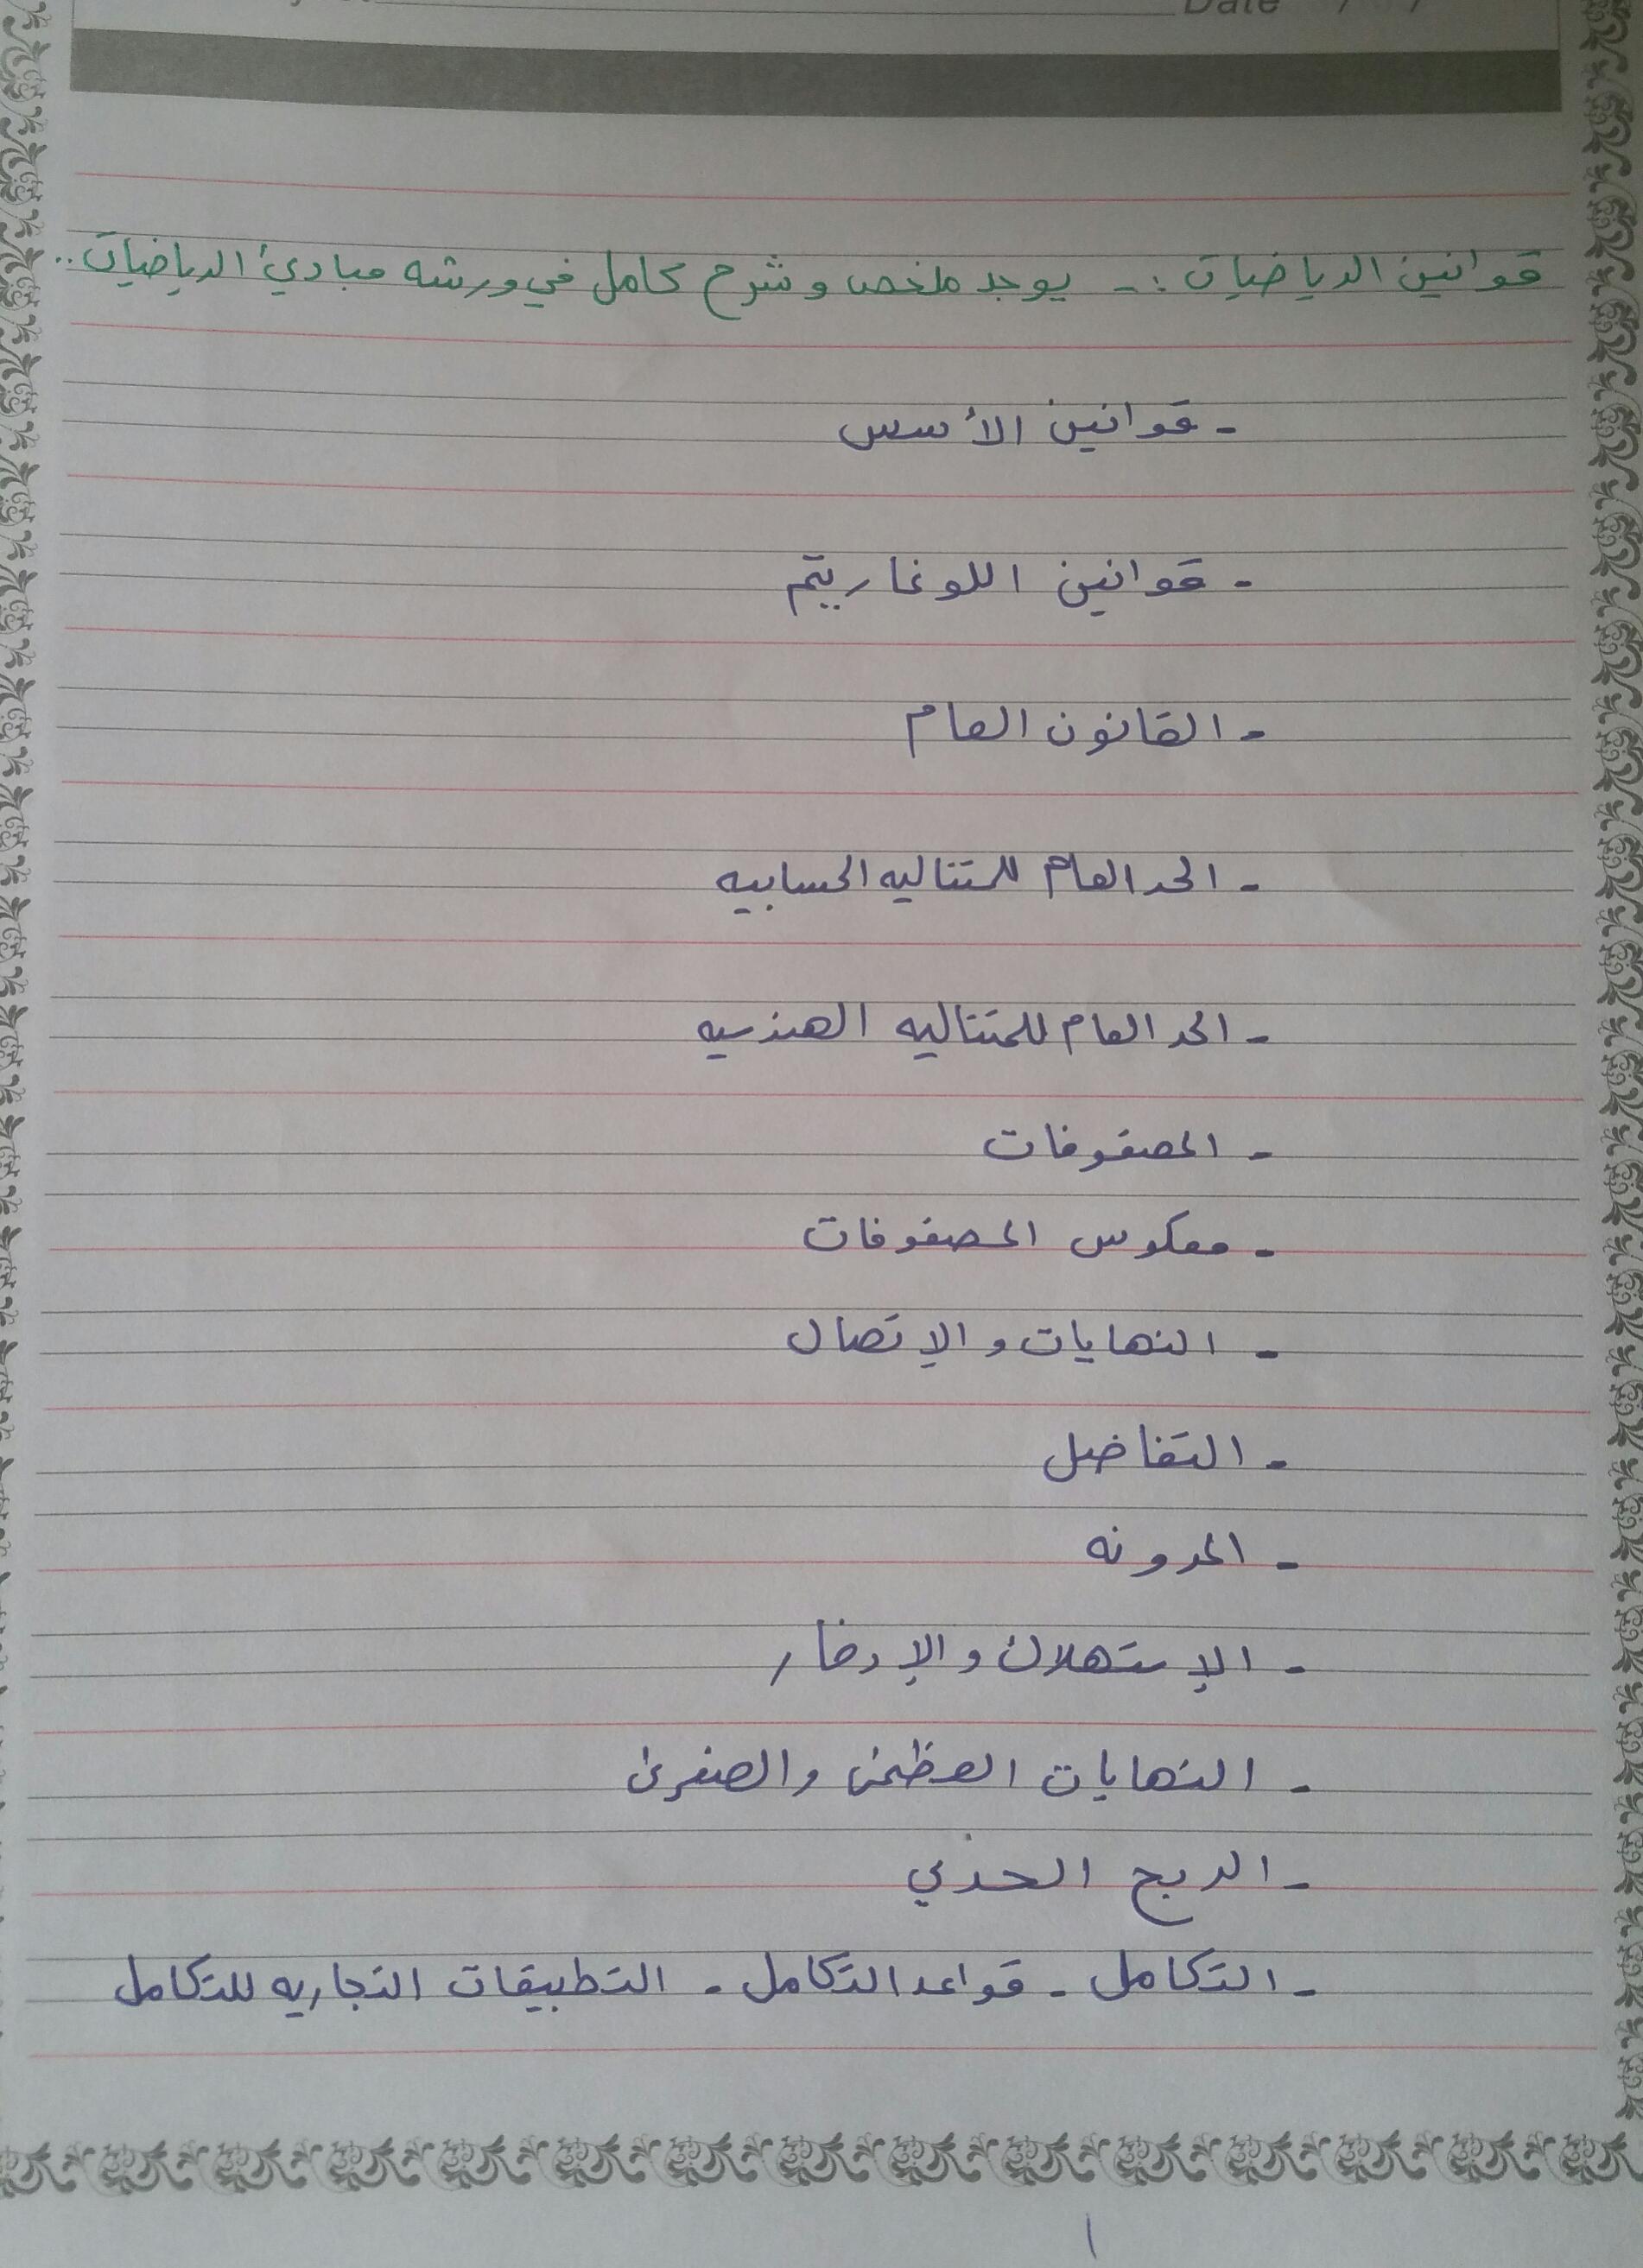 Date / /
قوانين الرياضيات :- يوجد ملخص وشرح كامل في ورشه مبادئ الرياضيات ..
- قوانين الأسس
- قوانين اللوغاريتم
- القانون العام
- الحد العام للمتتاليه الحسابيه
- الحد العام للمتتاليه الهندسيه
- المصفوفات
- معكوس المصفوفات
- النهايات والإتصال
- التفاضل
- المرونه
- الإستهلاك والإدخار
- النهايات العظمى والصغرى
- الربح الحدي
- التكامل - قواعد التكامل - التطبيقات التجاريه للتكامل
١